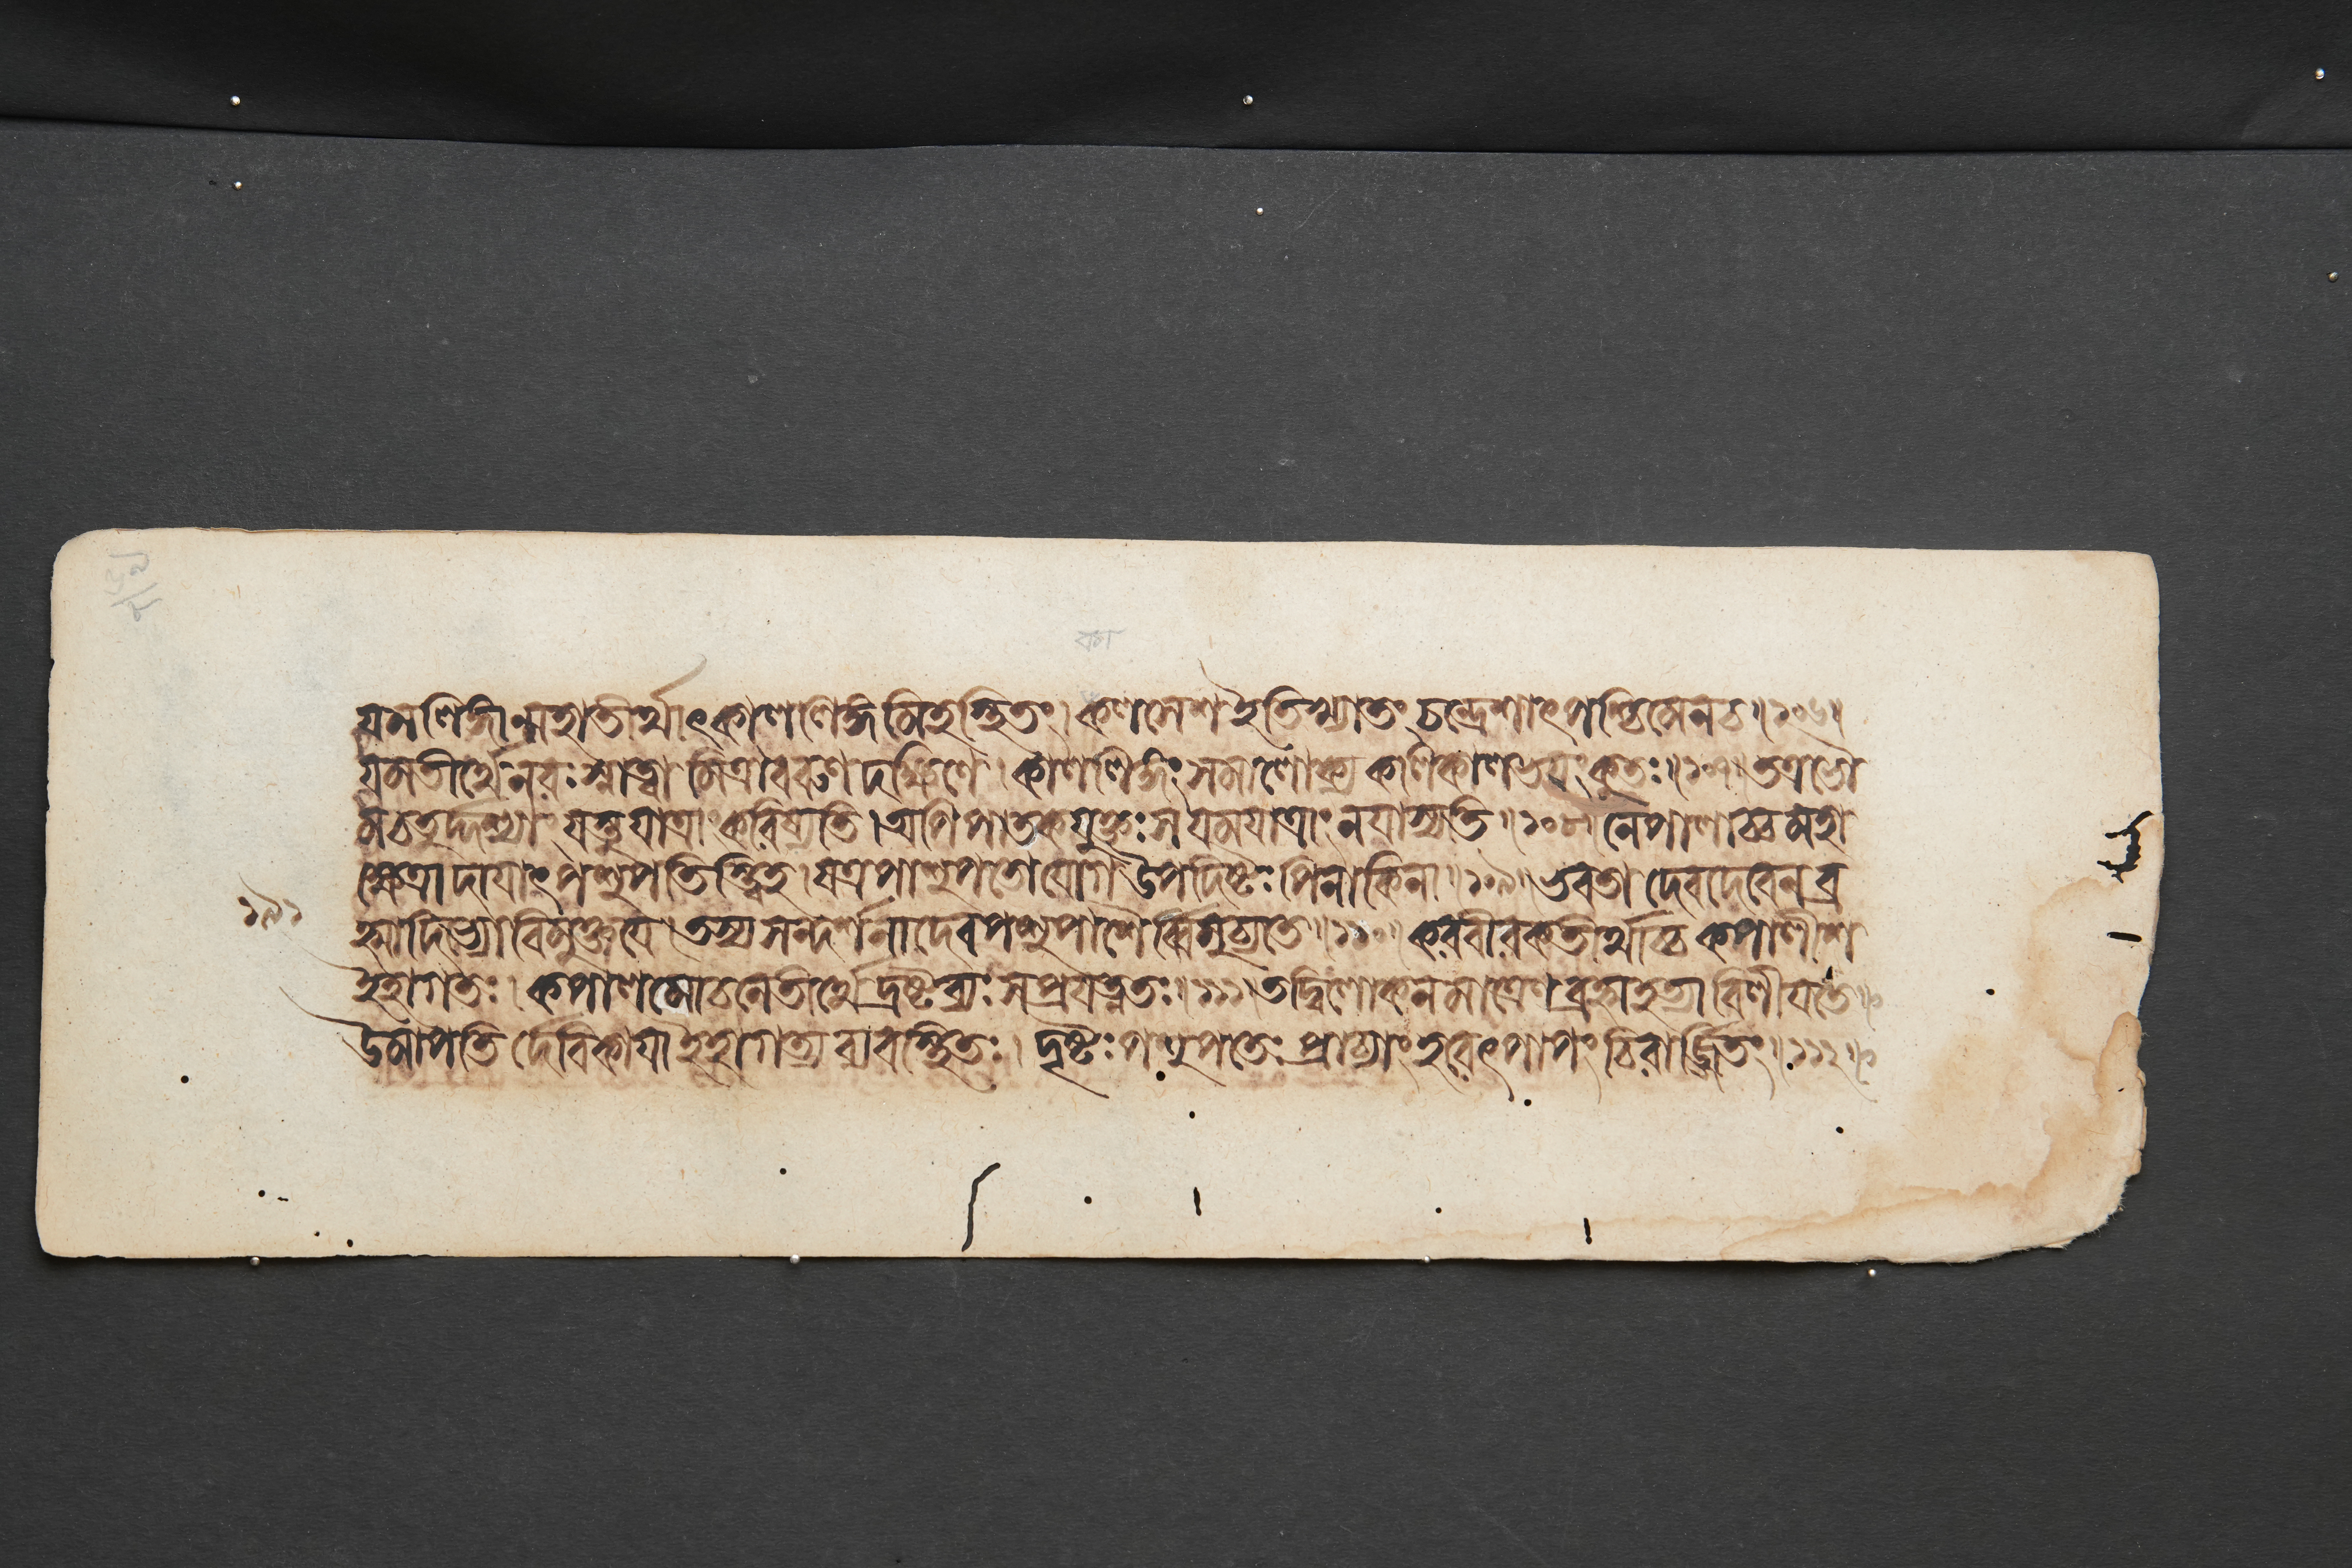 যমলিঙ্গান্মহাতীর্থাৎকাললিঙ্গমিহস্থিতং। কলশেশ ইতিখ্যাতং চন্দ্রেশাৎপশ্চিমেনচ॥১০৬॥
যমতীর্থেনরঃস্নাত্বা মিত্রাবরুণ দক্ষিণে। কাললিঙ্গং সমালোক্য কলিকালভয়ংকুতঃ॥১০৭॥তত্রভৌ
মচতুর্দ্দশ্যাং যস্তুযাত্রাং করিষ্যতি। অপিপাতকযুক্তঃ স যমযাত্রাং নযাস্যতি॥১০৮॥ নেপালাচ্চ মহা
ক্ষেত্রাদায়াৎপশুপতিস্ত্বিহ। যত্রপাশুপতোযোগ উপদিষ্টঃ পিনাকিনা॥১০৯॥ ভবতা দেবদেবেন ব্র
হ্মাদিভ্যোবিমুক্তয়ে। তস্য সন্দর্শনাদেব পশুপাশৈর্ব্বিমুচ্যতে॥১১০॥ করবীরকতীর্থাচ্চ কপালীশ
ইহাগতঃ। কপালমোচনেতীর্থে দ্রষ্টব্যঃ সপ্রযত্নতঃ॥১১১॥তদ্বিলোকনমাত্রেণ ব্রহ্মহত্যা বিলীয়তে॥
উমাপতি র্দেবিকায়া ইহাগত্য ব্যবস্থিতঃ। দৃষ্টঃ পশুপতেঃ প্রাচ্যাং হরেৎপাপং চিরার্জ্জিতং॥১১২॥
১৯১